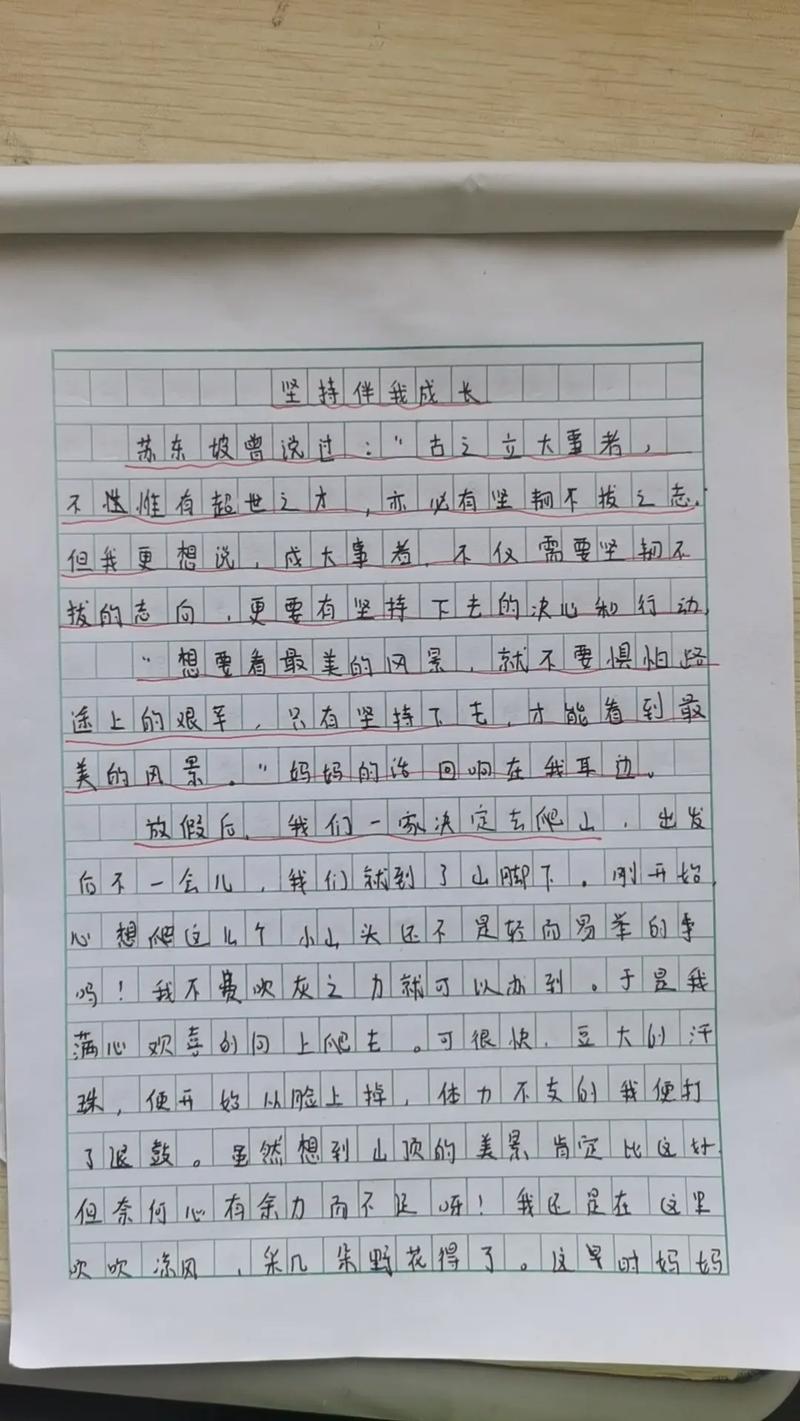 坚持伴我成长
苏东坡曾说过："古之立大事者，
不惟有超世之才，亦必有坚韧不拔之志.
但我更想说，成大事者，不仅需要坚韧不
拔的志向，更要有坚持下去的决心和行动,
"想要看最美的风景，就不要惧怕路
途上的艰辛，只有坚持下去，才能看到最
美的风景。"妈妈的话回响在我耳边。
放假后，我们一家决定去爬山，出发
后不一会儿，我们就到了山脚下。刚开始,
心想爬这么个小山头还不是轻而易举的事
吗！我不费吹灰之力就可以办到。于是我
满心欢喜的向上爬去。可很快，豆大的汗
珠，便开始从脸上掉，体力不支的我便打
了退鼓。虽然想到山顶的美景肯定比这好,
但奈何心有余力而不足呀！我还是在这里
吹吹凉风，采几朵野花得了。这是时妈妈